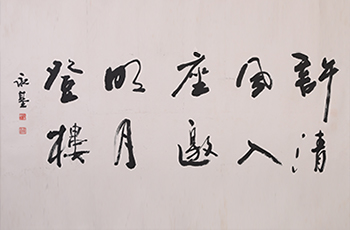 許清
風入
座邀
明月
登樓
永